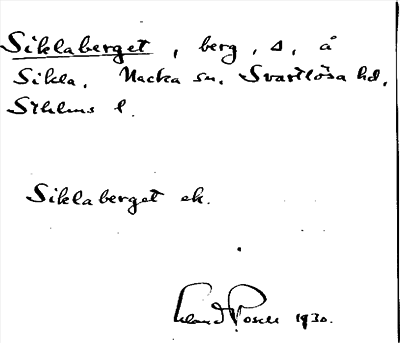 Siklaberget, berg, Δ, å
Sikla. Nacka sn. Svartlösa hd,
Sthlms l.
Siklaberget ek.
1930.